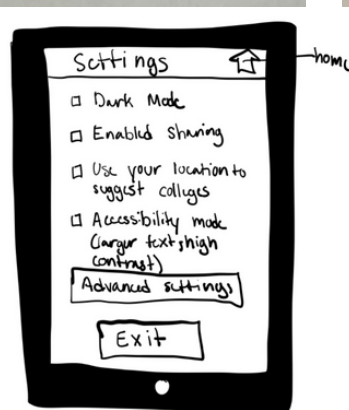 Settings
home
Dark Mode
Enabled Sharing
Use your location to
suggest colleges
Accessibility mode
(larger text, high
contrast)
Advanced settings
Exit